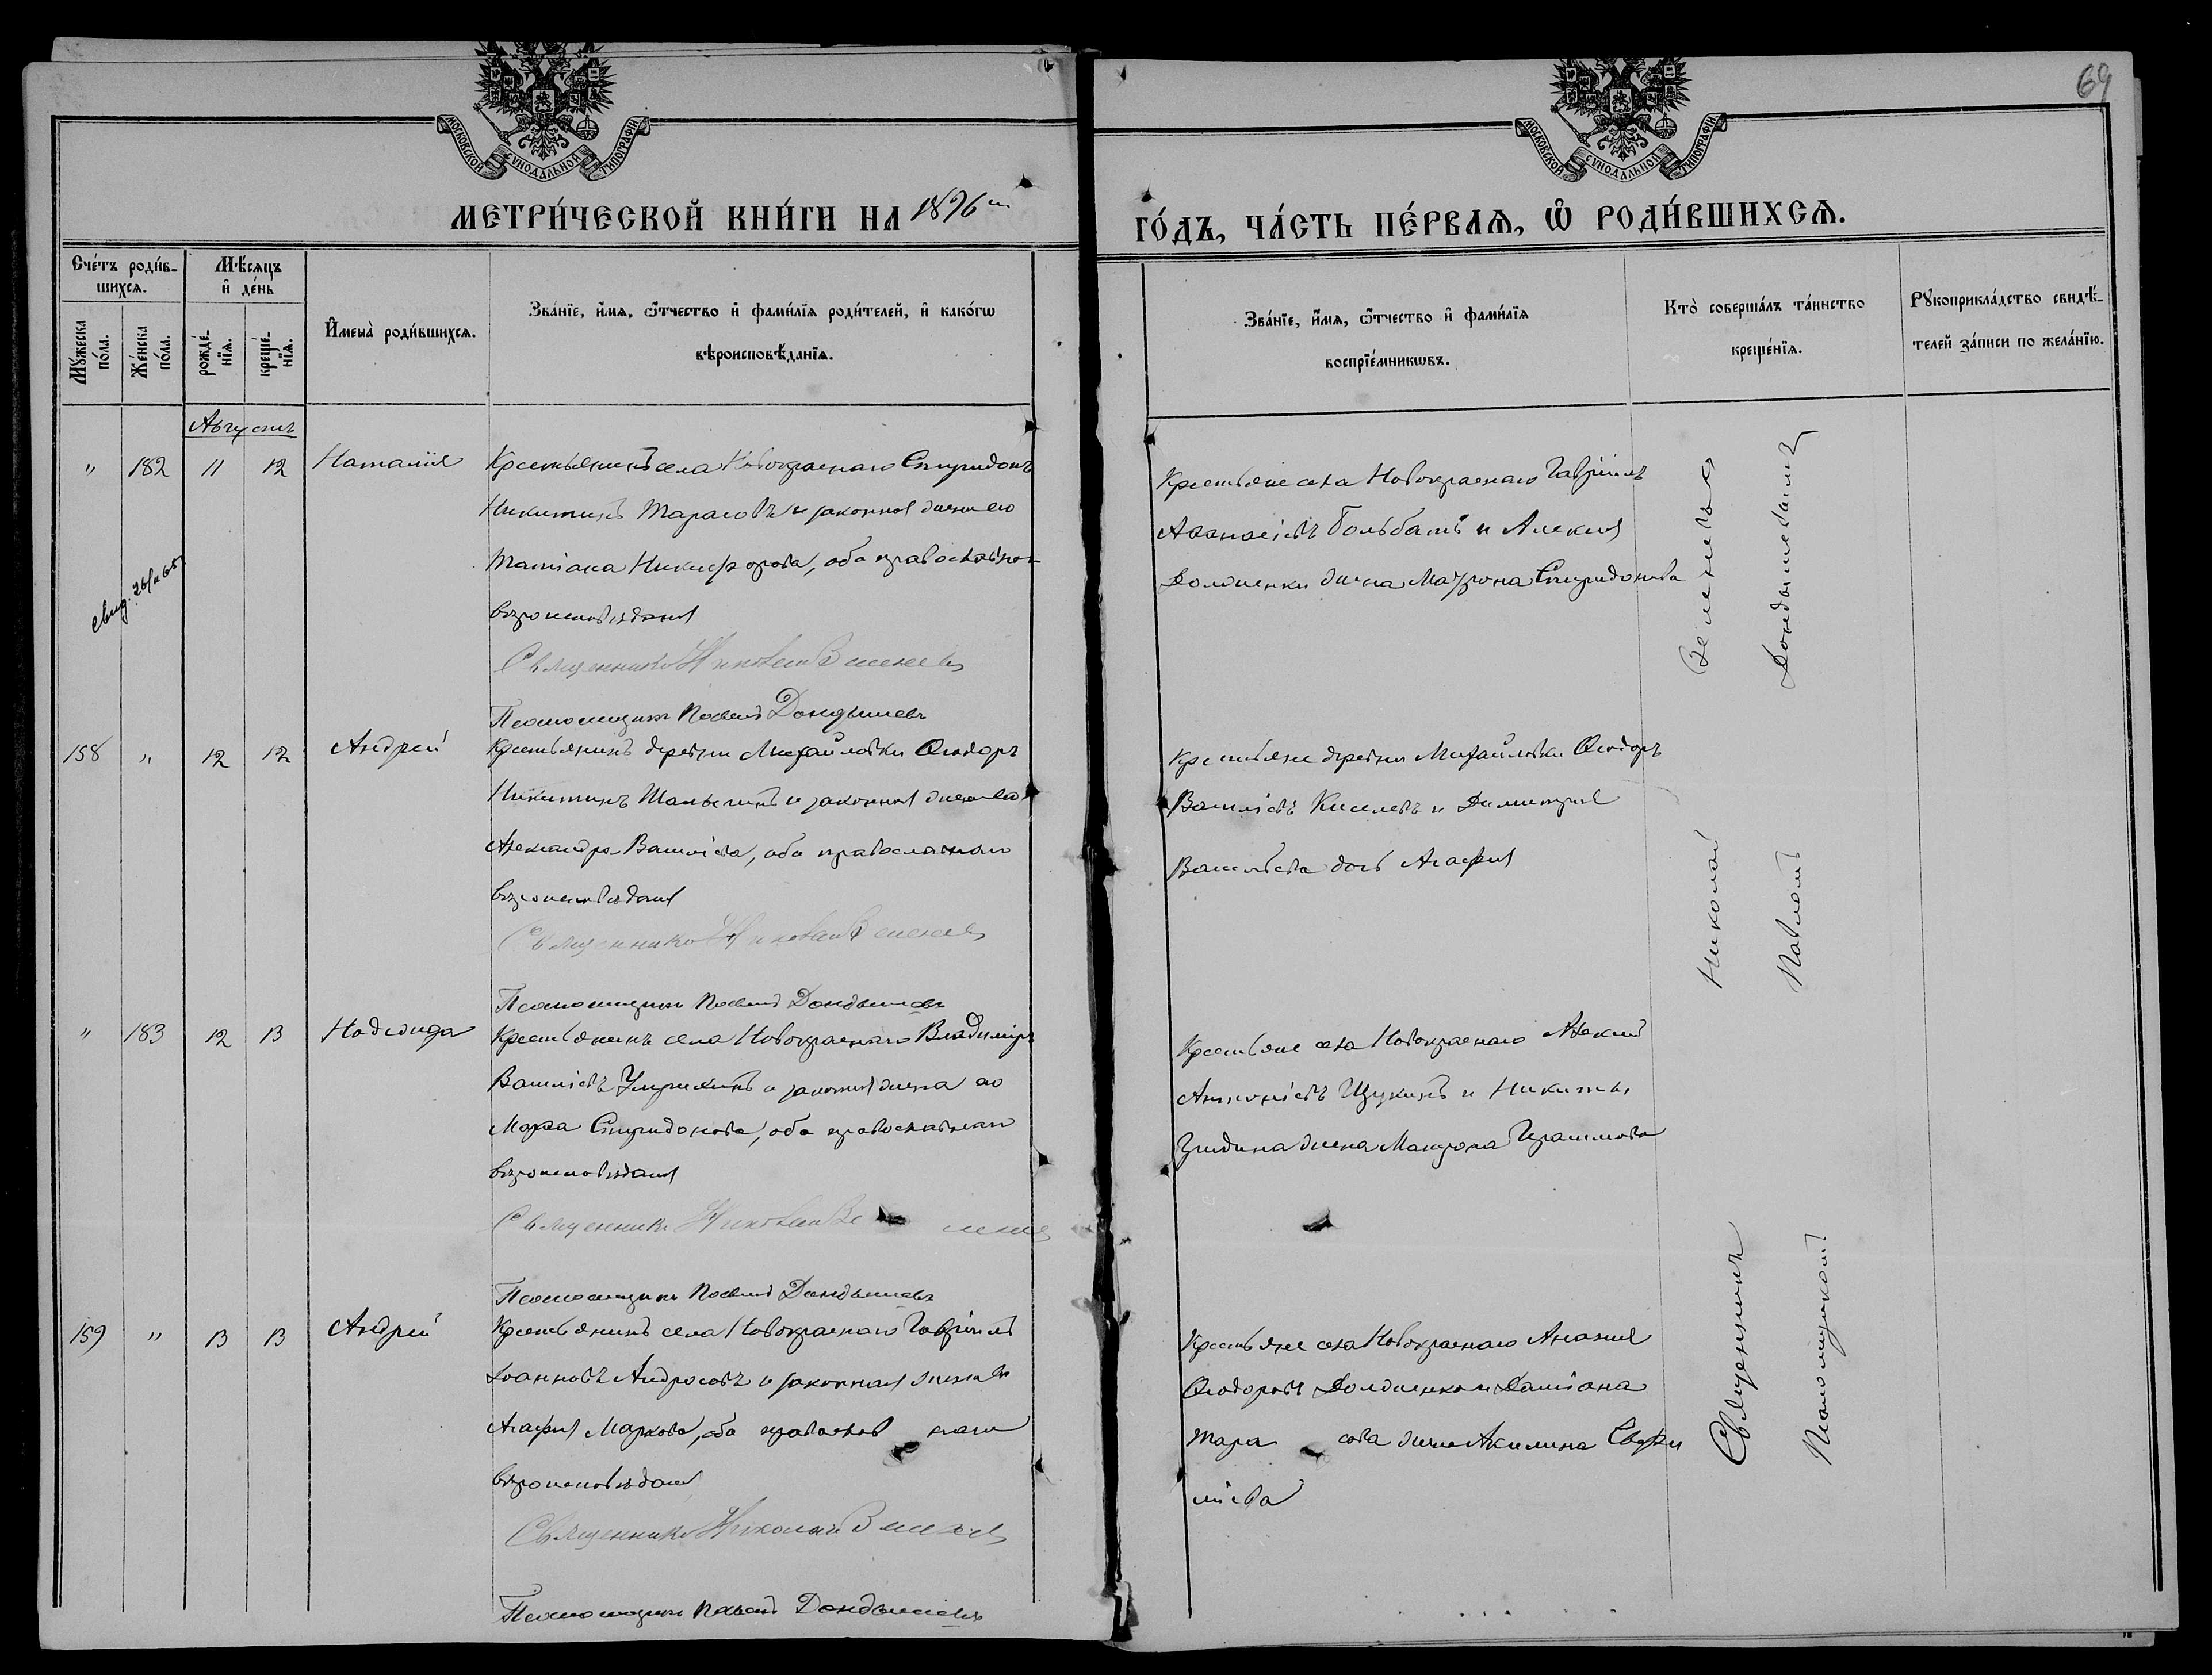 69
МОСКОВСКОЙ СѴНОДАЛЬНОЙ ТИПОГРАФІИ
МОСКОВСКОЙ СѴНОДАЛЬНОЙ ТИПОГРАФІИ
МЕТРИ́ЧЕСКОЙ КНИ́ГИ НА 1896й ГО́ДЪ, ЧА́СТЬ ПЕ́РВАѦ, Ѡ҆ РОДИ́ВШИХСѦ.
Сче́тъ роди́в-
шихсѧ.
Мꙋ́жеска по́ла.
Же́нска по́ла.
Мѣ́сѧцъ и҆ де́нь
рожде́-
нїѧ.
креще́-
нїѧ.
И҆мена̀ роди́вшихсѧ.
Зва́нїе, и҆́мѧ, ѻ҆́тчество и҆ фами́лїѧ роди́телей, и҆ како́гѡ
вѣроисповѣ́данїѧ.
Зва́нїе, и҆́мѧ, ѻ҆́тчество и҆ фами́лїѧ
воспрїе́мникѡвъ.
Кто̀ соверша́лъ та́инство
креще́нїѧ.
Рꙋкоприкла́дство свидѣ́-
телей за́писи по жела́нїю.
Августъ
" 182 11 12 Наталія
Крестьянинъ села Новокраснаго Спиридонъ
Никитинъ Тарасовъ и законная жена его
Татіана Никифорова, оба православнаго
вѣроисповѣданія
Священникъ Николай
Псаломщикъ Павелъ Дондышевъ
Крестьяне села Новокраснаго Гавріилъ
Аѳанасіевъ и Алексія
жена Матрона Спиридонова
158 " 12 12 Андрей
Крестьянинъ деревни Михайловки Ѳеодоръ
Никитинъ и законная жена его
Александра Василіева, оба православнаго
вѣроисповѣданія
Священникъ Николай
Псаломщикъ Павелъ Дондышевъ
Крестьяне деревни Михайловки Ѳеодоръ
Василіевъ Киселевъ и Димитрія
Васильева дочь Агафія
" 183 12 13 Надежда
Крестьянинъ села Новокраснаго Владиміръ
Василіевъ и законная жена его
Марѳа Спиридонова, оба православнаго
вѣроисповѣданія
Священникъ Николай
Псаломщикъ Павелъ Дондышевъ
Крестьяне села Новокраснаго Алексій
Антоніевъ Щукинъ и Никиты
жена Матрона Герасимова
159 " 13 13 Андрей
Крестьянинъ села Новокраснаго Гавріилъ
Іоанновъ Андросовъ и законная жена его
Агафія Маркова, оба православнаго
вѣроисповѣданія
Священникъ Николай
Псаломщикъ Павелъ Дондышевъ
Крестьяне села Новокраснаго Ананія
Ѳеодоровъ и Даміана
Тарасова жена Акилина Евфи
міева
Священникъ Николай
Псаломщикомъ Павломъ Дондышевымъ